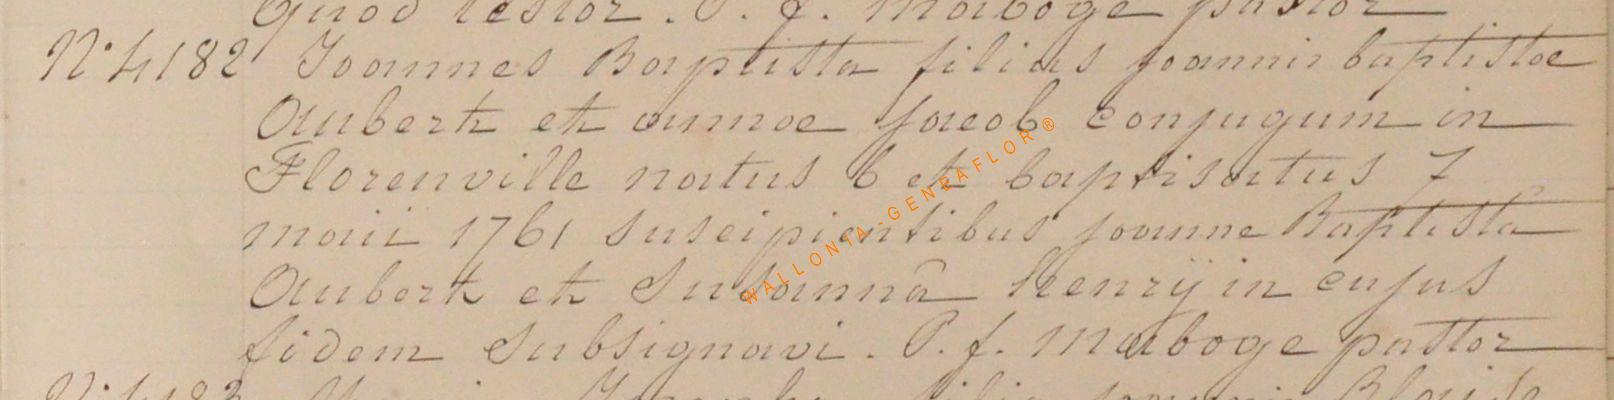 quod testor. P. f. maboge pastor
N° 4182 Joannes Baptista filius joannis baptistoe
Aubert et annoe jacob conjugum in
Florenville natus 6 et baptisatus 7
maii 1761 suscipientibus joanne Baptista
Aubert et Susannâ henrÿ in cujus
fidem subsignavi. P. f. maboge pastor
N° 4183 filia joannis
WALLONIA-GENEAFLOR®